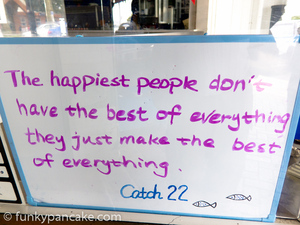 The happiest people don't
have the best of everything
they just make the best
of everything.
Catch 22
© funkypancake.com